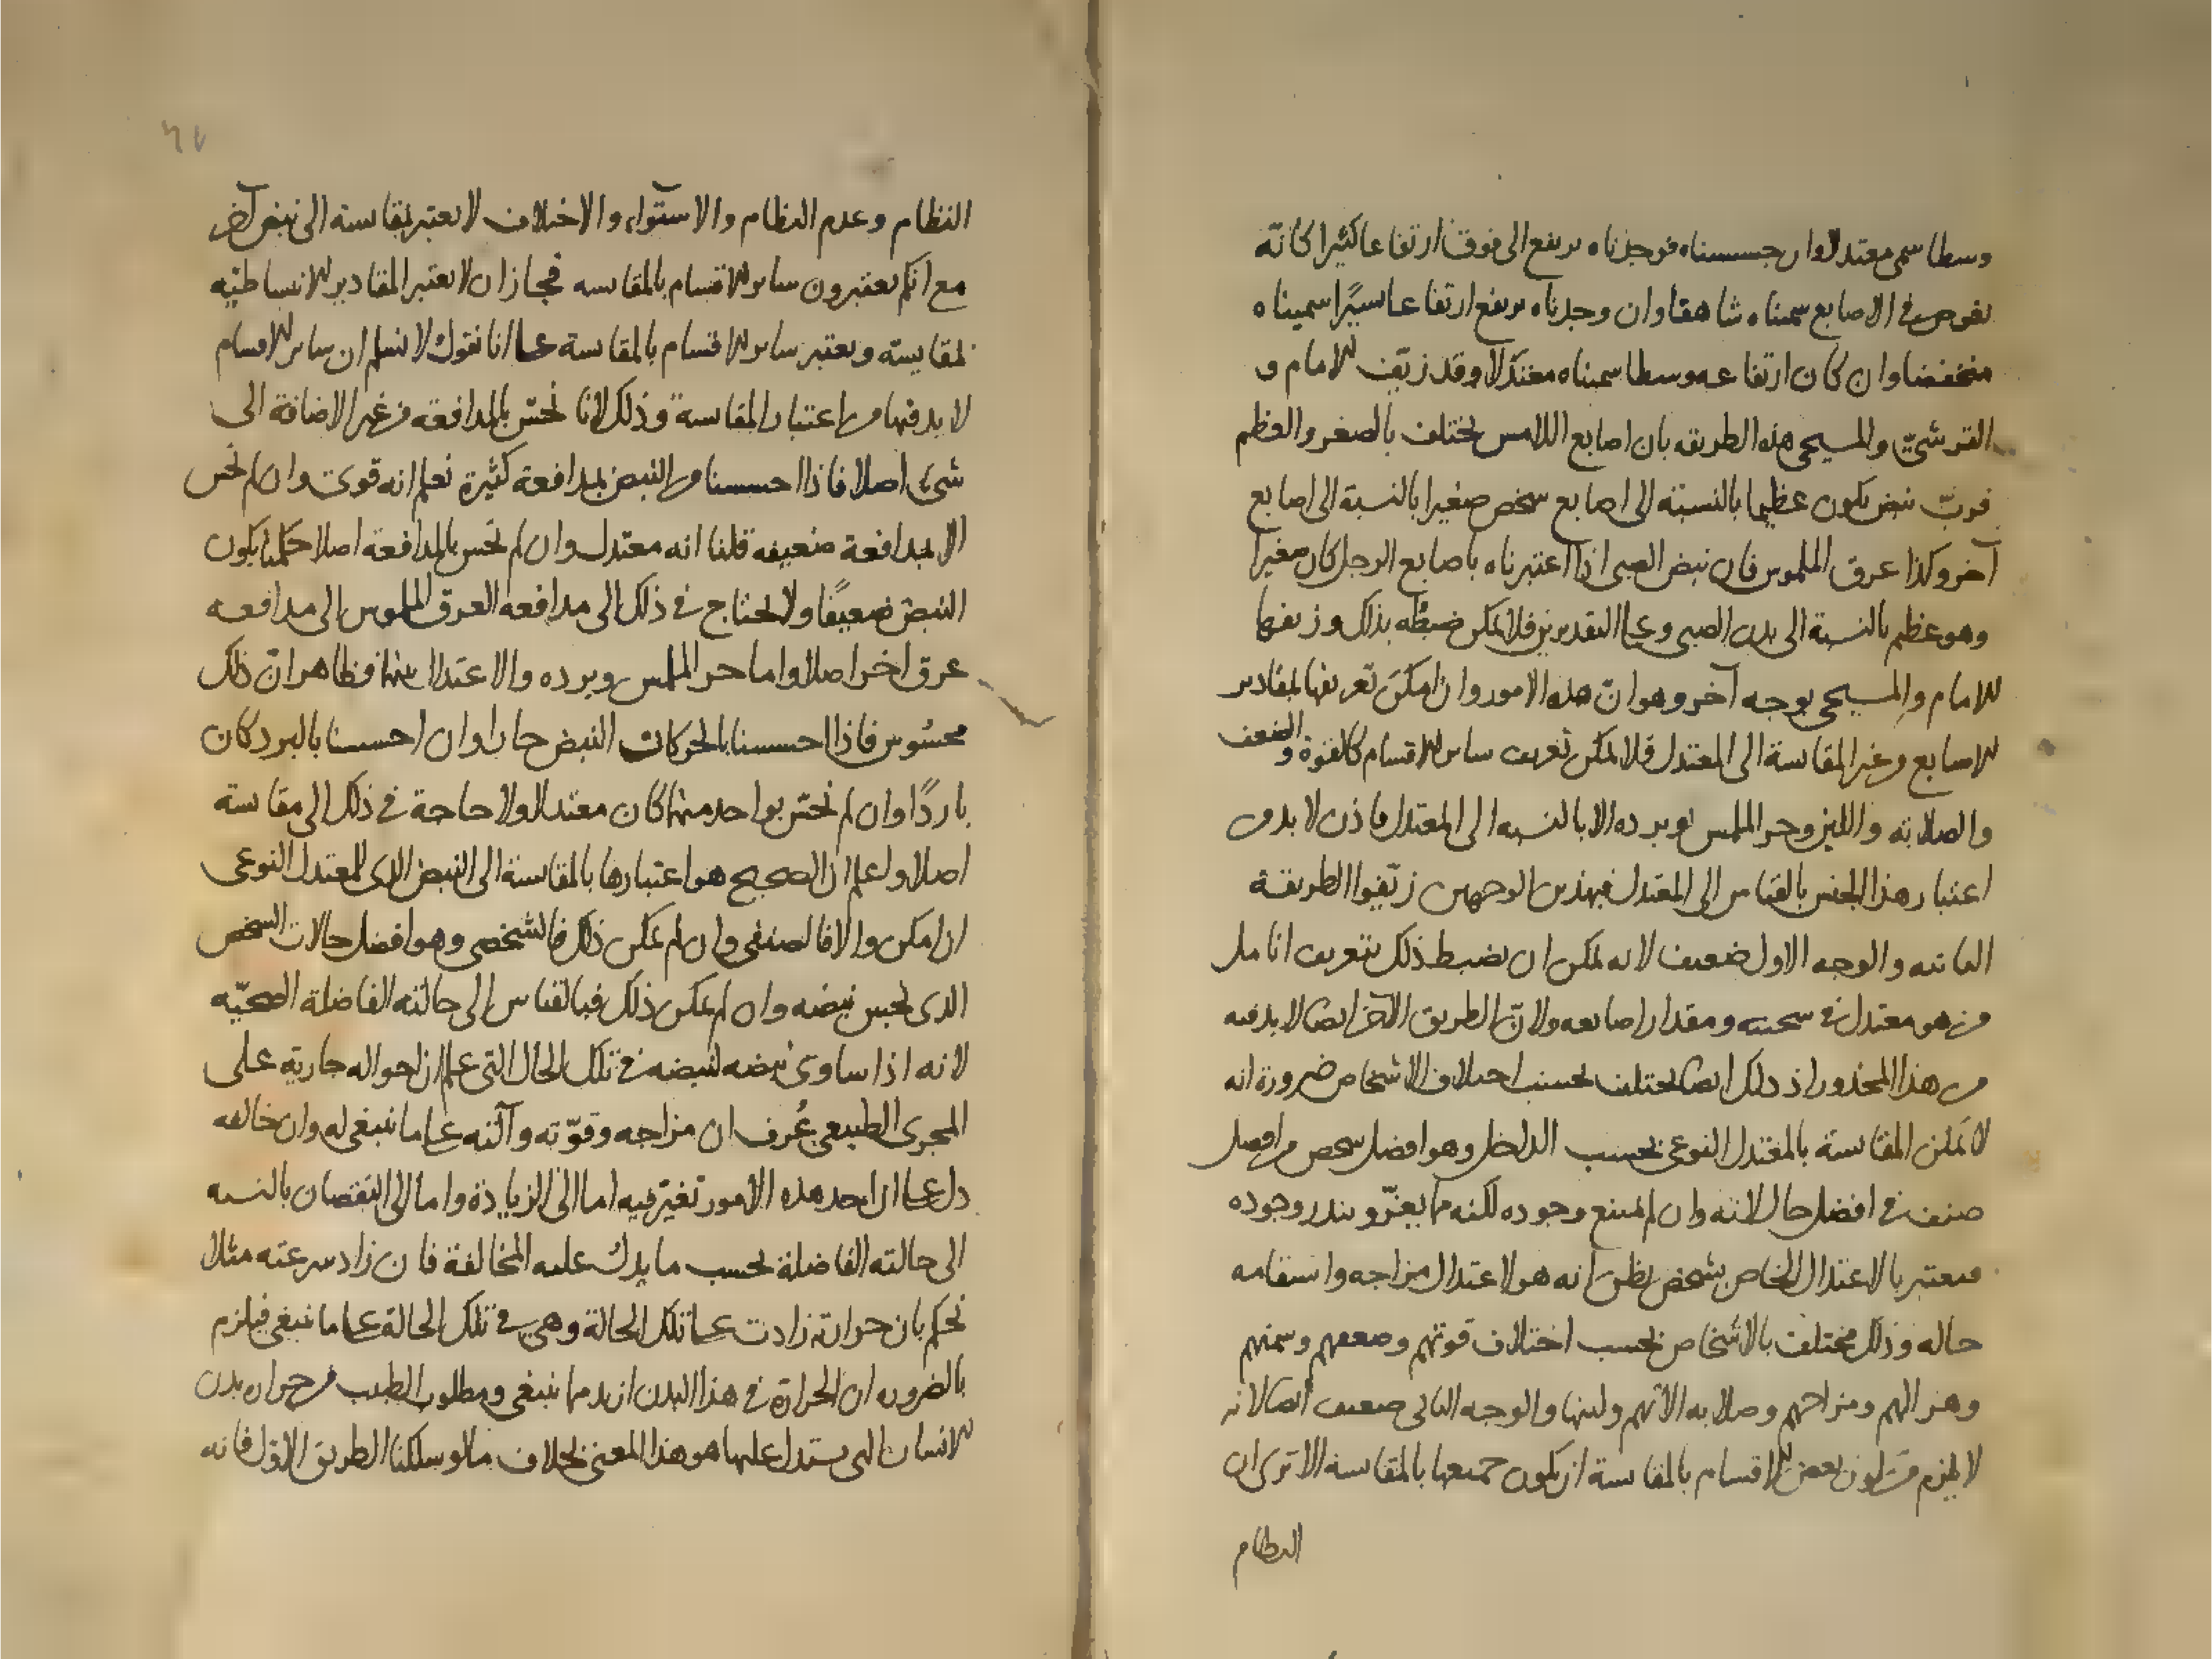 وسطا سمى معتدلا وان جسسناه فوجدناه يرتفع الى فوق ارتفاعا كثيرا كانه
يغوص في الاصابع سميناه شاهقا وان وجدناه يرتفع ارتفاعا يسيرا سميناه
منخفضا وان كان ارتفاعه وسطا سميناه معتدلا وقد زيّف الامام و
القرشيّ والمسيحي هذه الطريقه بان اصابع اللامس يختلف بالصغر والعظم
فربّ نبض يكون عظيما بالنسبة الى اصابع شخص صغيرا بالنسبة الى اصابع
آخر وكذا عرق الملموس فان نبض الصبى اذا اعتبرناه باصابع الرجل كان صغيرا
وهو عظيم بالنسبة الى بدن الصبى وعلى التقديرين فلا يمكن ضبطُه بذلك وزيفها
الامام والمسيحى بوجه آخر وهو ان هذه الامور وان امكنَ تعريفها بمقادير
الاصابع وغير المقايسة الى المعتدل فلا يمكن تعريف ساير الاقسام كالقوة والضعف
والصلابه واللين وحر الملمس وبرده الا بالنسبه الى المعتدل فاذن لا بد من
اعتبار هذا الجنس بالقياس الى المعتدل فبهذين الوجهين زيّفوا الطريقة
الثانيه والوجه الاول ضعيف لانه يمكن ان يضبط ذلك بتعريف انامل
من هو معتدل في سحنته ومقدار اصابعه ولانّ الطريق الآخر ايضا لا بد فيه
من هذا المحذور اذ ذلك ايضا يختلف بحسب اختلاف الاشخاص ضرورة انه
لا يمكن المقايسة بالمعتدل النوعى بحسب الداخل وهو افضل شخص من افضل
صنف في افضل حال لانه وان لم يمتنع وجوده لكنه مما يعزّ ويندر وجوده
فيعتبر بالاعتدال الخاص بشخص يظن انه هو لاعتدال مزاجه واستقامه
حاله وذلك مختلف بالاشخاص بحسب اختلاف قوتهم وضعفهم وسمنهم
وهزالهم ومزاجهم وصلابه الاتهم ولينها والوجه الثانى ضعيف ايضا لانه
لا يلزم من كون بعض الاقسام بالمقايسة ان يكون جميعها بالمقايسة الا ترى ان
النظام
٦٧
النظام وعدم النظام والاستواء والاختلاف لا يعتبر بمقايسة الى نبض آخر
مع انكم يعتبرون ساير الاقسام بالمقايسه فجاز ان لا يعتبر المقادير الانبساطيّه
بمقايسته ويعتبر ساير الاقسام بالمقايسة على انا نقول لا نسلم ان ساير الاقسام
لا بد فيها من اعتبار المقايسة وذلك لانا نحسّ بالمدافعه من غير الاضافة الى
شيء اصلا فاذا احسسنا من النبض بمدافعة كثيرة نعلم انه قوى وان لم نحس
الا بمدافعة ضعيفه قلنا انه معتدل وان لم نحس بالمدافعة اصلا حكمنا بكون
النبض ضعيفًا ولا نحتاج في ذلك الى مدافعه العرق الملموس الى مدافعه
عرق اخر اصلا واما حر الملمس وبرده والاعتدال بينهما فظاهر ان ذلك
محسُوس فاذا احسسنا بالحر كان النبض حارا وان احسسنا بالبرد كان
باردًا وان لم نحسّ بواحد منهما كان معتدلا ولا حاجة في ذلك الى مقايسته
اصلا واعلم ان الصحيح هو اعتبارها بالمقايسة الى النبض الذى للمعتدل النوعى
ان امكن والا فالصنفى وان لم يمكن ذلك فالشخصى وهو افضل حالات الشخص
الذى يجس نبضه وان لم يمكن ذلك فبالقياس الى حالته الفاضلة الصحيّه
لانه اذا ساوى نبضه لنبضه في تلك الحال التى علم ان احواله جارية على
المجرى الطبيعي عُرف ان مزاجه وقوّته وآلته على ما ينبغى له وان خالفه
دل على ان احد هذه الامور تغير فيه اما الى الزيادة واما الى النقصان بالنسبه
الى حالته الفاضلة بحسب ما يدلّ عليه المخالفة فان زاد سرعته مثلا
نحكم بان حرارته زادت على تلك الحالة وهي في تلك الحالة على ما ينبغى فيلزم
بالضروره ان الحرارة في هذا البدن ازيد مما ينبغى ومطلوب الطبيب من حرارة بدن
الانسان التى يستدل عليها هو هذا المعنى بخلاف ما لو سلكنا الطريق الاول فانه